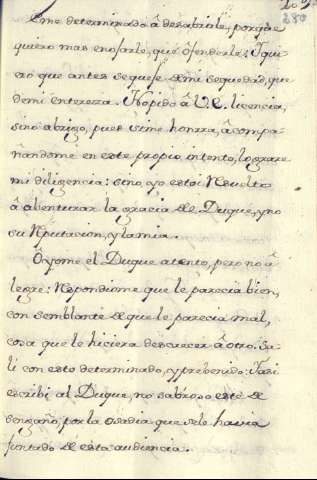 209
280
Eme determinado â desabrirle, porque
quiero mas enojarle, que ofenderle: Iquie
ro que antes sequeje demi sequedad, que
demi entereza. No pido â V.E. licencia,
sino abrigo, pues sime honrra, âcompa-
ñandome en este propio intento, lograre
mi diligencia: sino, yo estoi Resuelto
â abenturar la gracia de el Duque, yno
su Reputacion, y la mia.
Oyome el Duque atento, pero no â
legre: Respondiome que le parecia bien,
con semblante de que le parecia mal,
cosa que le hiciera descaecer â otro. Sa-
li con esto determinado, y prebenido: Iasi
escribi al Duque, no sabroso este de
sengaño, por la osadia que selo havia
juntado de esta audiencia.